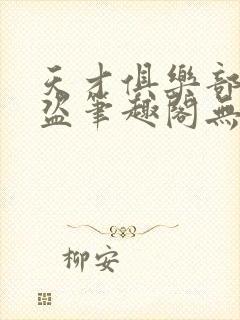 天才俱樂部
盜筆趣閣無
柳安